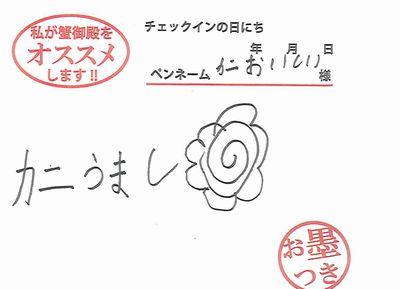 私が蟹御殿を
オススメ
します!!
チェックインの日にち
年 月 日
ペンネーム 仁おいしい 様
カニうまし
お墨
つき